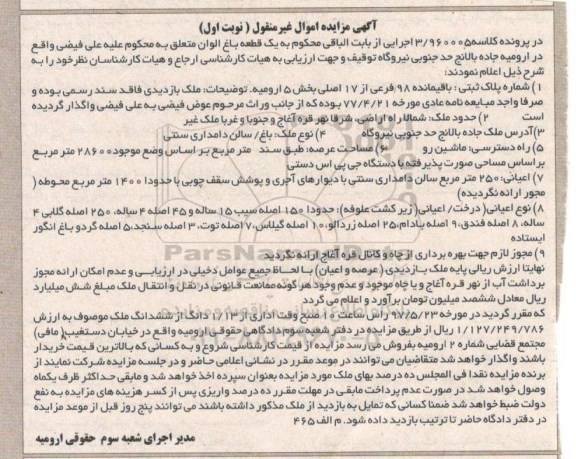 آگهی مزایده اموال غیرمنقول ( نوبت اول)
در پرونده کلاسه ۳/۹۶۰۰۰۵ اجرایی از بابت الباقی محکوم به یک قطعه باغ الوان متعلق به محکوم علیه علی فیضی واقع
در ارومیه جاده بالانج حد جنوبی نیروگاه توقیف و جهت ارزیابی به هیات کارشناسی ارجاع و هیات کارشناسان نظر خود را به
شرح ذیل اعلام نمودند:
۱) شماره پلاک ثبتی : باقیمانده ۹۸ فرعی از ۱۷ اصلی بخش ۵ ارومیه. توضیحات: ملک بازدیدی فاقد سند رسمی بوده و
صرفا واجد مبایعه نامه عادی مورخه ۷۷/۴/۲۱ بوده که از جانب وراث مرحوم عوض فیضی به علی فیضی واگذار گردیده
است ۲) حدود ملک: شمالا راه اراضی، شرقا نهر قره آغاج و جنوبا و غربا ملک غیر
۳)آدرس ملک جاده بالانج حد جنوبی نیروگاه ۴) نوع ملک: باغ/ سالن دامداری سنتی
۵) راه دسترسی: ماشین رو ۶) مساحت عرصه: طبق سند متر مربع بر اساس وضع موجود ۲۸۶۰۰ متر مربع
بر اساس مساحی صورت پذیرفته با دستگاه جی پی اس دستی
۷) اعیانی: ۲۵۰ متر مربع سالن دامداری سنتی با دیوارهای آجری و پوشش سقف چوبی با حدودا ۱۴۰۰ متر مربع محوطه (
مجوز ارائه نگردیده)
۸) نوع اعیانی( درخت/ اعیانی( زیر کشت علوفه): حدودا ۱۵۰ اصله سیب ۱۵ ساله و ۴۵ اصله ۴ ساله، ۲۵۰ اصله گلابی ۴
ساله، ۸ اصله فندق، ۹ اصله بادام، ۲۵ اصله زردآلو، ۱۰ اصله گیلاس، ۷ اصله توت، ۳ اصله سنجد، ۵ اصله گردو باغ انگور
ایستاده
۹) مجوز لازم جهت بهره برداری از چاه و کانال قره آغاج ارائه نگردید
نهایتا ارزش ریالی پایه ملک بازدیدی ( عرصه و اعیان) با لحاظ جمیع عوامل دخیلی در ارزیابی و عدم امکان ارائه مجوز
برداشت آب از نهر قره آغاج و یا چاه موجود و عدم وجود هر گونه ممانعت قانونی در نقل و انتقال ملک مبلغ شش میلیارد
ریال معادل ششصد میلیون تومان برآورد و اعلام می گردد
که مقرر گردید در مورخه ۹۷/۵/۲۳ از ساعت ۱۰ صبح وقت اداری از ۱/۱۳ دانگ از ششدانگ ملک موصوف به ارزش
۱/۱۲۷/۲۴۹/۷۸۶ ریال از طریق مزایده در دفتر شعبه سوم دادگاهی حقوقی ارومیه واقع در خیابان دستغیب( مافی)
مجتمع قضایی شماره ۲ ارومیه بفروش می رسد مزایده از قیمت کارشناسی شروع و به کسانی که بالاترین قیمت خریدار
باشند واگذار خواهد شد متقاضیان می توانند در موعد مقرر در نشانی اعلامی حاضر و در جلسه مزایده شرکت نمایند از
برنده مزایده نقدا فی المجلس ده درصد بهای ملک مورد مزایده بعنوان سپرده اخذ خواهد شد و مابقی حداکثر ظرف یکماه
وصول خواهد شد در صورت عدم پرداخت مابقی در مهلت مقرر ده درصد واریزی پس از کسر هزینه های مزایده به نفع
دولت ضبط خواهد شد ضمنا کسانی که تمایل به بازدید از ملک مذکور داشته باشند می توانند پنج روز قبل از موعد مزایده
در دفتر دادگاه حاضر تا ترتیب بازدید داده شود. م الف ۴۶۵
مدیر اجرای شعبه سوم حقوقی ارومیه